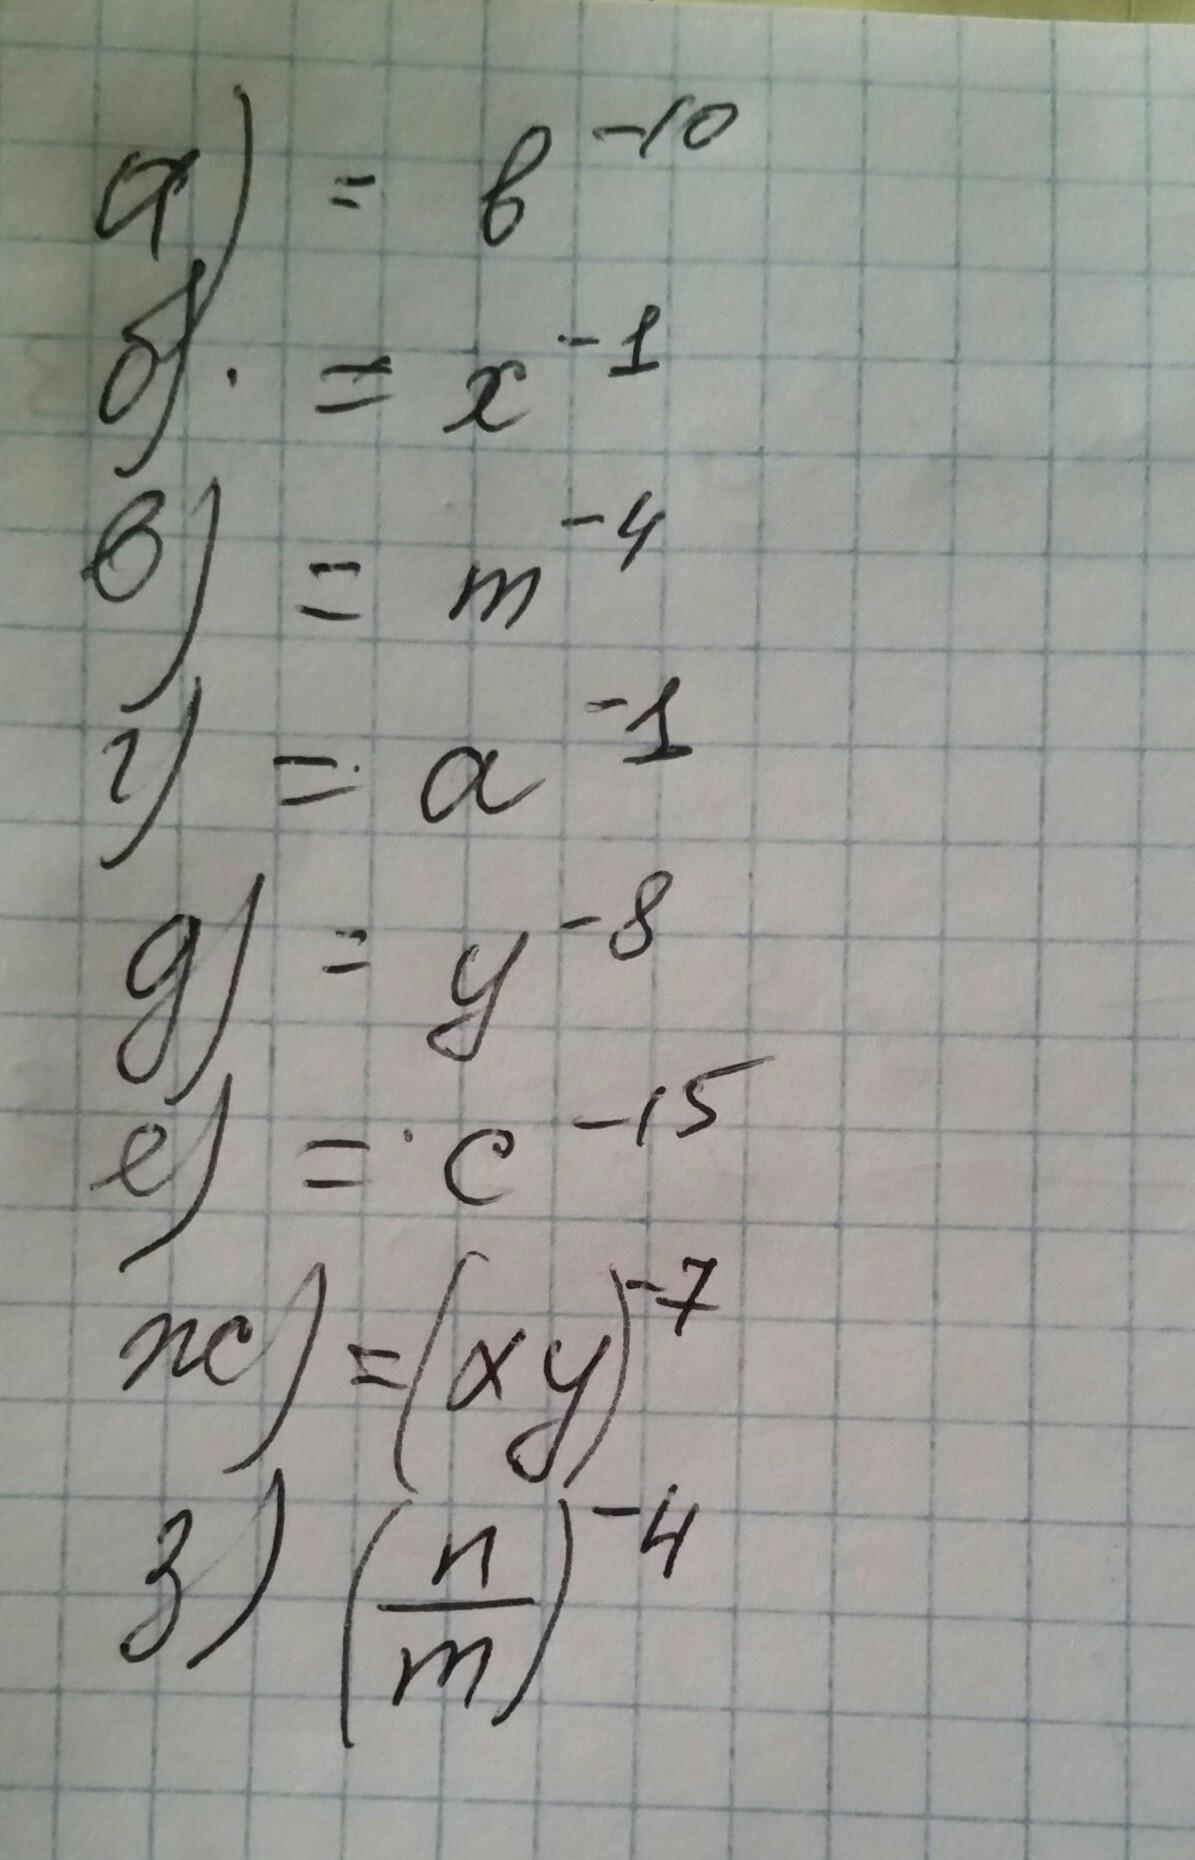 а) = b⁻¹⁰
б) = x⁻¹
в) = m⁻⁴
г) = a⁻¹
д) = y⁻⁸
е) = c⁻¹⁵
ж) = (xy)⁻⁷
з) (n/m)⁻⁴